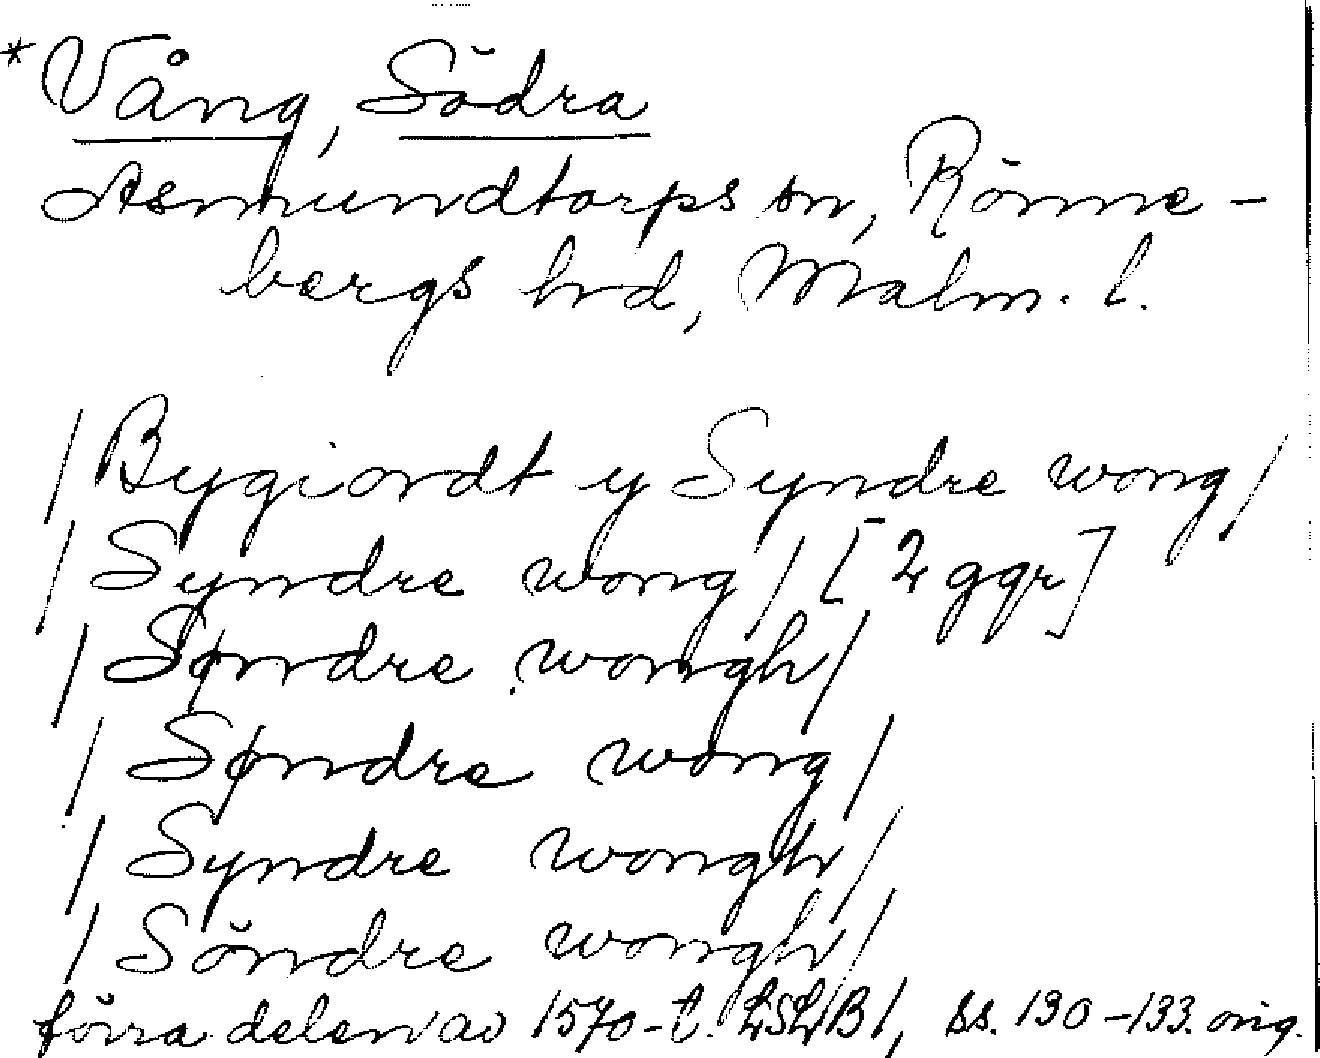 *Vång, Södra
Asmundtorps sn, Rönne-
bergs hrd, Malm. l.
/Bygiordt y Syndre wong/
/Syndre wong/ [2 ggr]
/Søndre wongh/
/Søndre wong/
/Syndre wongh/
/Söndre wongh/
förra delen av 1570-t. LSLB1, ss. 130-133. orig.